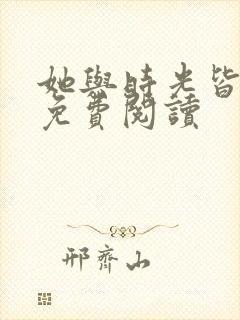 她與時光皆
免費閱讀
邢齊山